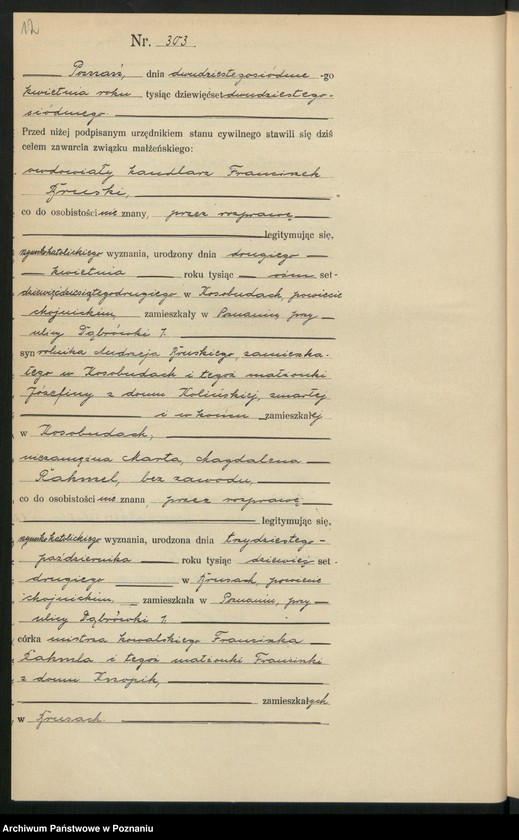 12
Nr. 303.
Poznań, dnia dwudziestegosiódme -go
kwietnia roku tysiąc dziewięćset dwudziestego-
siódmego.
Przed niżej podpisanym urzędnikiem stanu cywilnego stawili się dziś
celem zawarcia związku małżeńskiego:
owdowiały handlarz Franciszek
Kruski,
co do osobistości nie znany, przez rozprawę
legitymując się,
rzymskokatolickiego wyznania, urodzony dnia drugiego
kwietnia roku tysiąc ośm set-
dziewięćdziesiątegodrugiego w Kosobudach, powiecie
chojnickim, zamieszkały w Poznaniu, przy
ulicy Dąbrówki 7.
syn rolnika Andrzeja Kruskiego, zamieszka-
łego w Kosobudach i tegoż małżonki
Józefiny z domu Kolińskiej, zmarłej
i w końcu zamieszkałej
w Kosobudach,
niezamężna Marta, Magdalena
Rahmel, bez zawodu,
co do osobistości nie znana przez rozprawę
legitymując się,
rzymskokatolickiego wyznania, urodzona dnia trzydziestego-
października roku tysiąc dziewięć set-
drugiego w Kruszach, powiecie
chojnickim, zamieszkała w Poznaniu, przy
ulicy Dąbrówki 7.
córka mistrza kowalskiego Franciszka
Rahmla i tegoż małżonki Franciszki
z domu
zamieszkałych
w Kruszach.
Archiwum Państwowe w Poznaniu